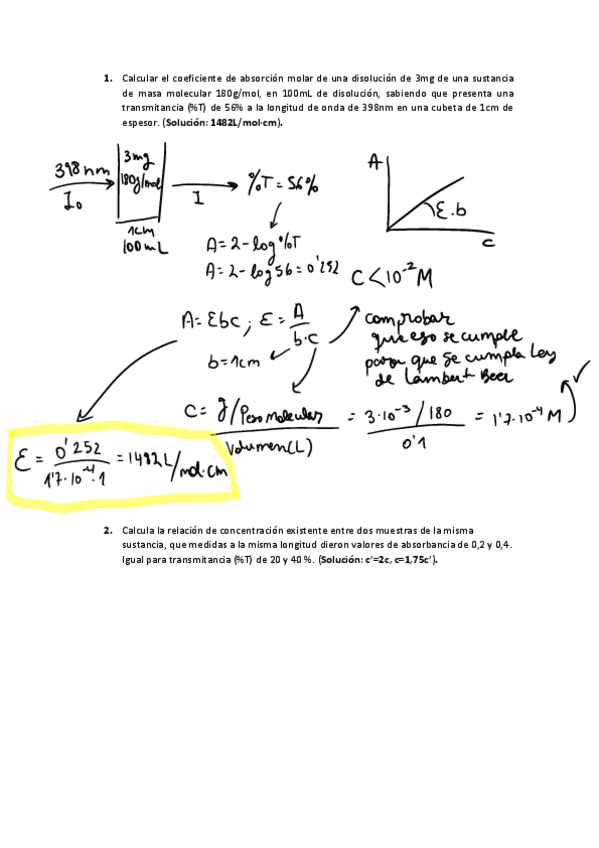 1. Calcular el coeficiente de absorción molar de una disolución de 3mg de una sustancia
de masa molecular 180g/mol, en 100mL de disolución, sabiendo que presenta una
transmitancia (%T) de 56% a la longitud de onda de 398nm en una cubeta de 1cm de
espesor. (Solución: 1482L/mol·cm).
398nm
I₀
3mg
180g/mol
1cm
100mL
I
%T = 56%
A = 2 - log%T
A = 2 - log56 = 0'252
A
Ɛ.b
C
C < 10⁻² M
A = Ɛbc ; Ɛ = A / b·c
b = 1cm
comprobar
que eso se cumple
para que se cumpla Ley
de Lambert Beer
C = g/Peso molecular / Volumen(L) = 3·10⁻³/180 / 0'1 = 1'7·10⁻⁴ M
Ɛ = 0'252 / 1'7·10⁻⁴·1 = 1482L/mol·cm
2. Calcula la relación de concentración existente entre dos muestras de la misma
sustancia, que medidas a la misma longitud dieron valores de absorbancia de 0,2 y 0,4.
Igual para transmitancia (%T) de 20 y 40 %. (Solución: c'=2c, c=1,75c').